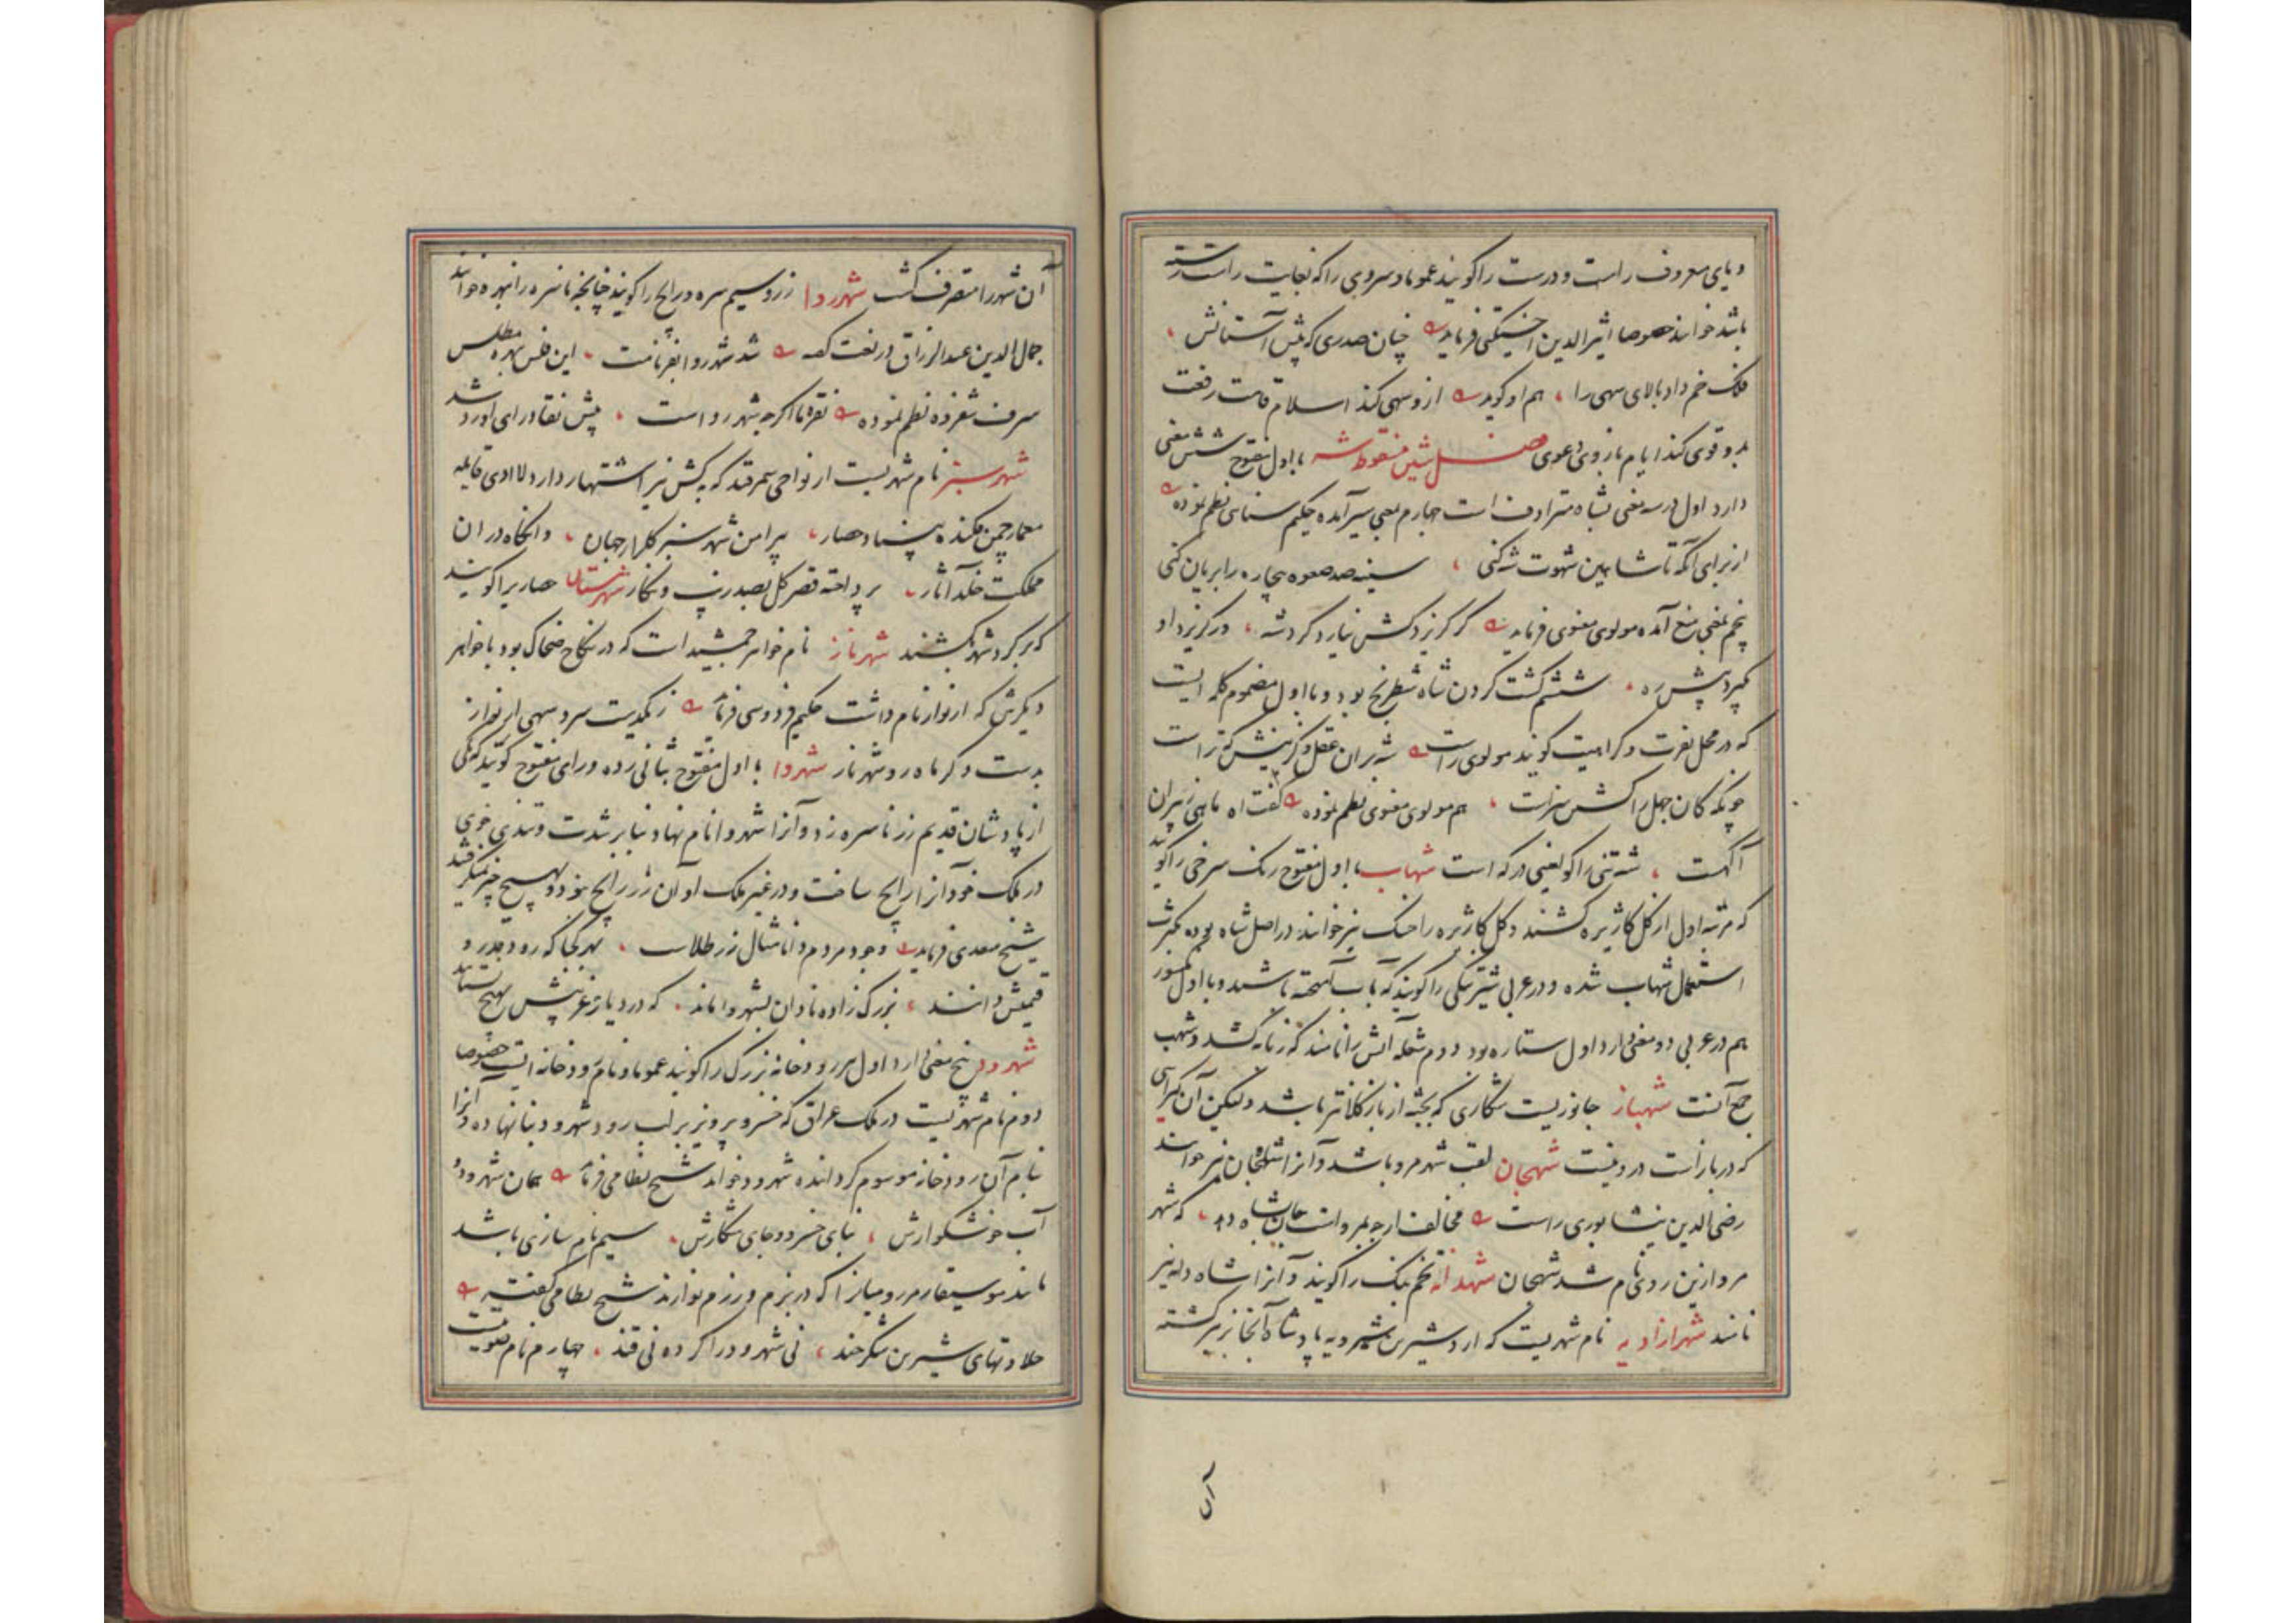 و یای معروف راست و درست را گویند عموما و سروی را که نجایت راست رسته
باشد خوانند خصوصا اثیرالدین اخسیکتی فرماید چنان صدری که پیش آستانش
فلک خم داد بالای سهی را هم او گوید از وسهی کند اسلام قامت رفعت
بدو قوی کند ایام بازوی دعوی فصل شین منقوطه شه با اول مفتوح شش معنی
دارد اول در سه معنی بشاه مترادف است چهارم بمعنی سیر آمده حکیم سنائی نظم نموده
از برای آنکه تا شاهین شهوت شه کنی سینه صد صعوه بیچاره را بریان کنی
پنجم بمعنی منع آمده مولوی معنوی فرماید گر گریزد کس نیارد کرد شه در گریزد او
بگیرد پیش ره ششم کشت کردن شاه شطرنج بود و با اول مضموم کلمه ایست
که در محل نفرت و کراهیت گویند مولوی راست شه بران عقل و گزینش که تراست
چونکه کان جهل را کش سزاست هم مولوی معنوی نظم نموده گفت اه ماهی ز پیران
آگهست شه تنی را کو لعین درگه است شهاب با اول مفتوح رنگ سرخی را گویند
که مرتبه اول از گل کاژیره کشند و گل کاژیره را خسک نیز خوانند در اصل شاه آب بوده بکثرت
استعمال شهاب شده و در عربی شیر تنکی را گویند که با آب آمیخته باشند و با اول مکسور
هم در عربی دو معنی دارد اول ستاره بود دوم شعله آتش را نامند که زبانه کشد و شهب
جمع آنست شهباز جانوریست شکاری که بجثه از باز کلانتر باشد ولیکن آن گیرایی
که در باز است در و نیست شهجان لقب شهر مرو باشد و آنرا شاهجان نیز خوانند
رضی الدین نیشابوری راست مخالف ارچه بمرو است جان شاه دهد که شهر
مرو ازین روی نام شد شهجان شهدانه تخم بنگ را گویند و آنرا شاه دانه نیز
نامند شهرآزادیه نام شهریست که اردشیر بن شیرویه پادشاه آنجا نیز گشته
آن
آن شهر را متصرف گشت شهر روا زر و سیم سره و رایج را گویند چنانچه ناسره را نبهره خوانند
جمال الدین عبدالرزاق در نعت گفته شد شهر روا بفر نامت این فلس نبهره مطلس
شرف شفروه نظم نموده نقره ما اگرچه شهر رواست پیش نقاد رای او رد شد
شهر سبز نام شهریست از نواحی سمرقند که به کش نیز اشتهار دارد لا ادری قایله
معمار چمن فکنده بنیاد حصار پیرامن شهر سبز گلزار جهان وانگاه در ان
مملکت خلد آثار پرداخته قصر گل بصد زیب و نگار شهرستان حصاریرا گویند
که بر گرد شهر کشند شهرناز نام خواهر جمشید است که در نکاح ضحاک بود با خواهر
دیگرش که ارنواز نام داشت حکیم فردوسی فرماید ز یکدست سرو سهی ارنواز
بدست دگر ماه رو شهرناز شهروا با اول مفتوح بثانی زده و رای مفتوح گویند که یکی
از پادشاهان قدیم زر ناسره زد و آنرا شهروا نام نهاد و بنا بر شدت و تندی خوی
در ملک خود آنرا رایج ساخت و در غیر ملک او آن زر رایج نبود و بهیچ چیز نمیگرفتند
شیخ سعدی فرماید وجود مردم دانا مثال زر طلاست بهر کجا که رود قدر و
قیمتش دانند بزرگ زاده نادان بشهروا ماند که در دیار غریبش بهیچ نستانند
شهرود پنج معنی دارد اول هر رودخانه بزرگ را گویند عموما و نام رودخانه ایست خصوصا
دوم نام شهریست در ملک عراق که خسرو پرویز بر لب رود شهرود بنا نهاده و آنرا
بنام آن رودخانه موسوم گردانیده شهرود خواند شیخ نظامی فرماید همان شهرود و
آب خوشگوارش بنای خسرو و جای شکارش سیم نام سازی باشد
مانند موسیقار مر رومیانرا که در بزم و رزم نوازند شیخ نظامی گفته
حلاوتهای شیرین شکر خند نی شهرود را کرده نی قند چهارم نام صوتیست